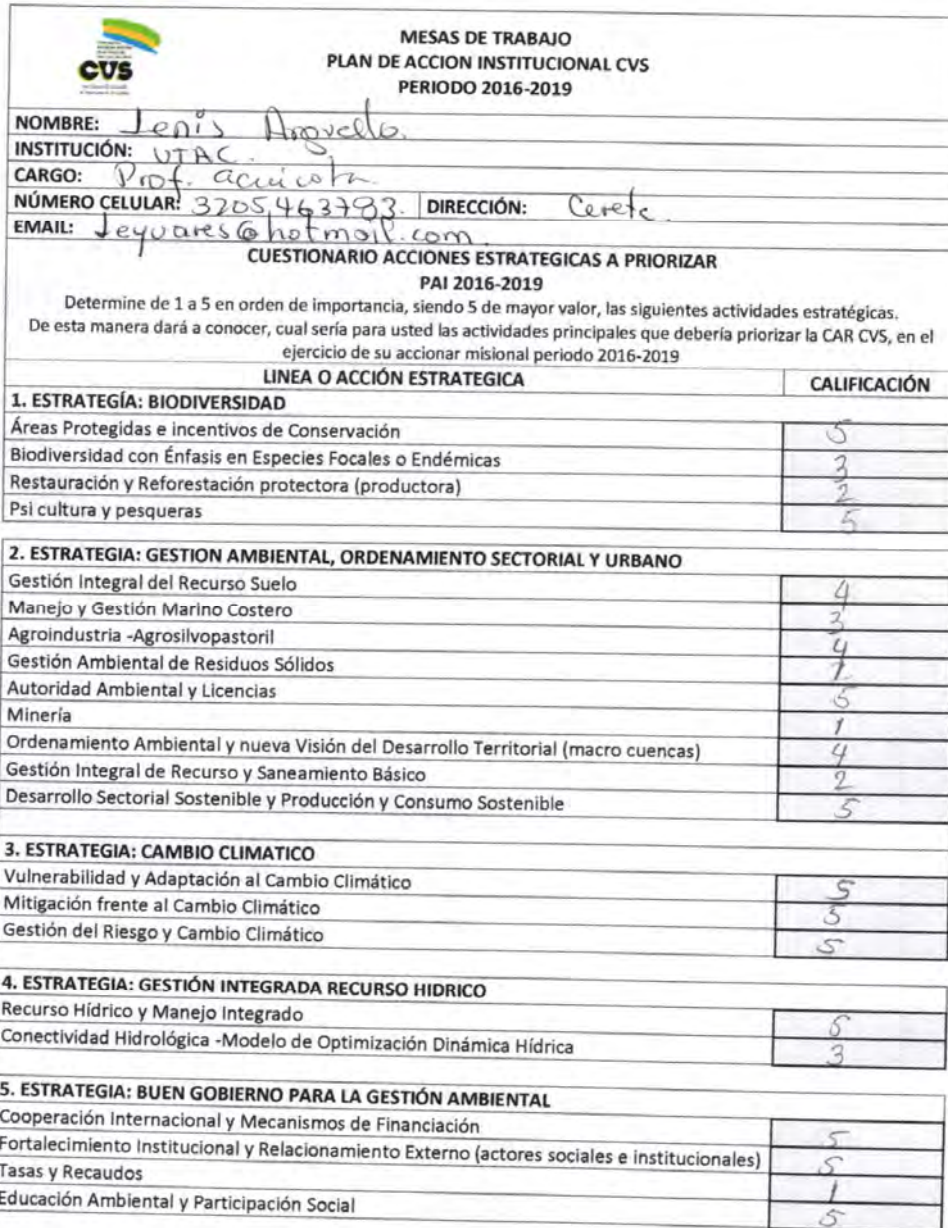 CVS
MESAS DE TRABAJO
PLAN DE ACCION INSTITUCIONAL CVS
PERIODO 2016-2019
NOMBRE: Lenis Arguello.
INSTITUCIÓN: UTAC.
CARGO: Prof. acuicola
NÚMERO CELULAR: 3205463783. DIRECCIÓN: Cerete.
EMAIL: Leyuares@hotmail.com.
CUESTIONARIO ACCIONES ESTRATEGICAS A PRIORIZAR
PAI 2016-2019
Determine de 1 a 5 en orden de importancia, siendo 5 de mayor valor, las siguientes actividades estratégicas.
De esta manera dará a conocer, cual sería para usted las actividades principales que debería priorizar la CAR CVS, en el
ejercicio de su accionar misional periodo 2016-2019
LINEA O ACCIÓN ESTRATEGICA CALIFICACIÓN
1. ESTRATEGÍA: BIODIVERSIDAD
Áreas Protegidas e incentivos de Conservación 5
Biodiversidad con Énfasis en Especies Focales o Endémicas 3
Restauración y Reforestación protectora (productora) 2
Psi cultura y pesqueras 5
2. ESTRATEGIA: GESTION AMBIENTAL, ORDENAMIENTO SECTORIAL Y URBANO
Gestión Integral del Recurso Suelo 4
Manejo y Gestión Marino Costero 3
Agroindustria -Agrosilvopastoril 4
Gestión Ambiental de Residuos Sólidos
Autoridad Ambiental y Licencias 5
Minería 1
Ordenamiento Ambiental y nueva Visión del Desarrollo Territorial (macro cuencas) 4
Gestión Integral de Recurso y Saneamiento Básico 2
Desarrollo Sectorial Sostenible y Producción y Consumo Sostenible 5
3. ESTRATEGIA: CAMBIO CLIMATICO
Vulnerabilidad y Adaptación al Cambio Climático 5
Mitigación frente al Cambio Climático 5
Gestión del Riesgo y Cambio Climático 5
4. ESTRATEGIA: GESTIÓN INTEGRADA RECURSO HIDRICO
Recurso Hídrico y Manejo Integrado 5
Conectividad Hidrológica -Modelo de Optimización Dinámica Hídrica 3
5. ESTRATEGIA: BUEN GOBIERNO PARA LA GESTIÓN AMBIENTAL
Cooperación Internacional y Mecanismos de Financiación 5
Fortalecimiento Institucional y Relacionamiento Externo (actores sociales e institucionales) 5
Tasas y Recaudos 1
Educación Ambiental y Participación Social 5